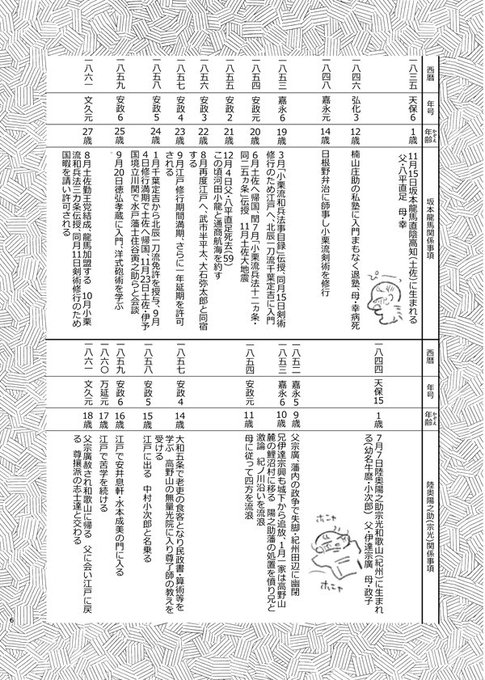 西暦 年号 年齢 かぞえ 坂本龍馬関係事項
一八三五 天保6 1歳 11月15日坂本龍馬直陰高知(土佐)に生まれる
父・八平直足 母・幸
一八四六 弘化3 12歳 楠山庄助の私塾に入門まもなく退塾、母・幸病死
一八四八 嘉永元 14歳 日根野弁治に師事し小栗流剣術を修行
一八五三 嘉永6 19歳 3月「小栗流和兵法事目録」伝授、同月15日剣術
修行のため江戸へ、北辰一刀流千葉定吉に入門
一八五四 安政元 20歳 6月土佐へ帰国、閏7月「小栗流兵法十二ヵ条・
同二五ヵ条」伝授 11月土佐大地震
一八五五 安政2 21歳 12月4日父・八平直足死去(59)
この頃河田小龍と通商航海を約す
一八五六 安政3 22歳 8月再度江戸へ、武市半平太、大石弥太郎と同宿
する
一八五七 安政4 23歳 9月江戸修行期間満期、さらに一年延期を許可
される
一八五八 安政5 24歳 1月千葉定吉から北辰一刀流免許を授与、9月
4日修行満期で土佐へ帰国、11月23日土佐・伊予
国境立川関で水戸藩士住谷寅之助らと会談
一八五九 安政6 25歳 9月20日徳弘孝蔵に入門、洋式砲術を学ぶ
一八六一 文久元 27歳 8月土佐勤王党結成、龍馬加盟する 10月小栗
流和兵法三カ条伝授、同月11日剣術修行のため
国暇を請い許可される
西暦 年号 年齢 かぞえ 陸奥陽之助(宗光)関係事項
一八四四 天保15 1歳 7月7日陸奥陽之助宗光和歌山(紀州)に生まれ
る(幼名牛麿・小次郎) 父・伊達宗廣 母・政子
ホニャ
ホニャ
一八五二 嘉永5 9歳 父宗廣、藩内の政争で失脚・紀州田辺に幽閉
一八五三 嘉永6 10歳 兄伊達宗興も城下から追放、1月一家は高野山
麓の鯉沼村に移る 陽之助藩の処置を憤り兄と
激論 紀ノ川沿いを流浪
一八五四 安政元 11歳 母に従って四方を流浪
一八五七 安政4 14歳 大和五条で老吏の食客となり民政書・算術等を
学ぶ 高野山の無量光院に入り尊了師の教えを
受ける
一八五八 安政5 15歳 江戸に出る 中村小次郎と名乗る
一八五九 安政6 16歳 江戸で安井息軒・水本成美の門に入る
一八六〇 万延元 17歳 江戸で苦学を続ける
一八六一 文久元 18歳 父宗廣赦され和歌山に帰る 父に会い江戸に戻
る 尊攘派の志士達と交わる
6